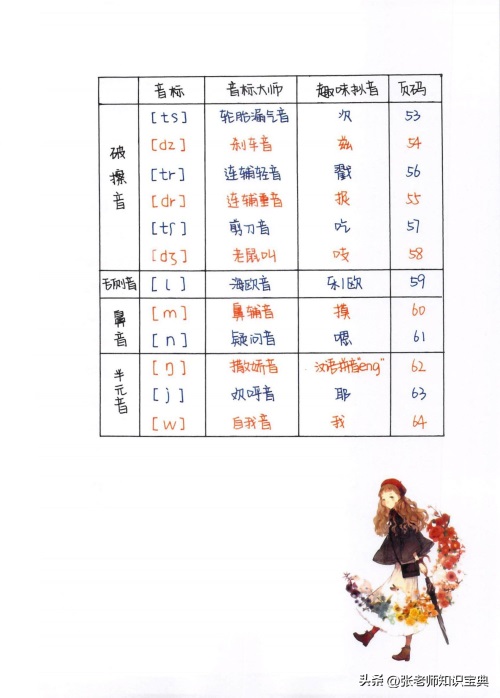 音标 音标大师 趣味抄音 页码
破擦音 [ts] 轮胎漏气音 次 53
[dz] 刹车音 兹 54
[tr] 连辅轻音 戳 56
[dr] 连辅重音 捉 55
[tʃ] 剪刀音 吃 57
[dʒ] 老鼠叫 吱 58
舌侧音 [l] 海欧音 乐|欧 59
鼻音 [m] 鼻辅音 摸 60
[n] 疑问音 嗯 61
半元音 [ŋ] 撒娇音 汉语拼音"eng" 62
[j] 欢呼音 耶 63
[w] 自我音 我 64
头条 @张老师知识宝典